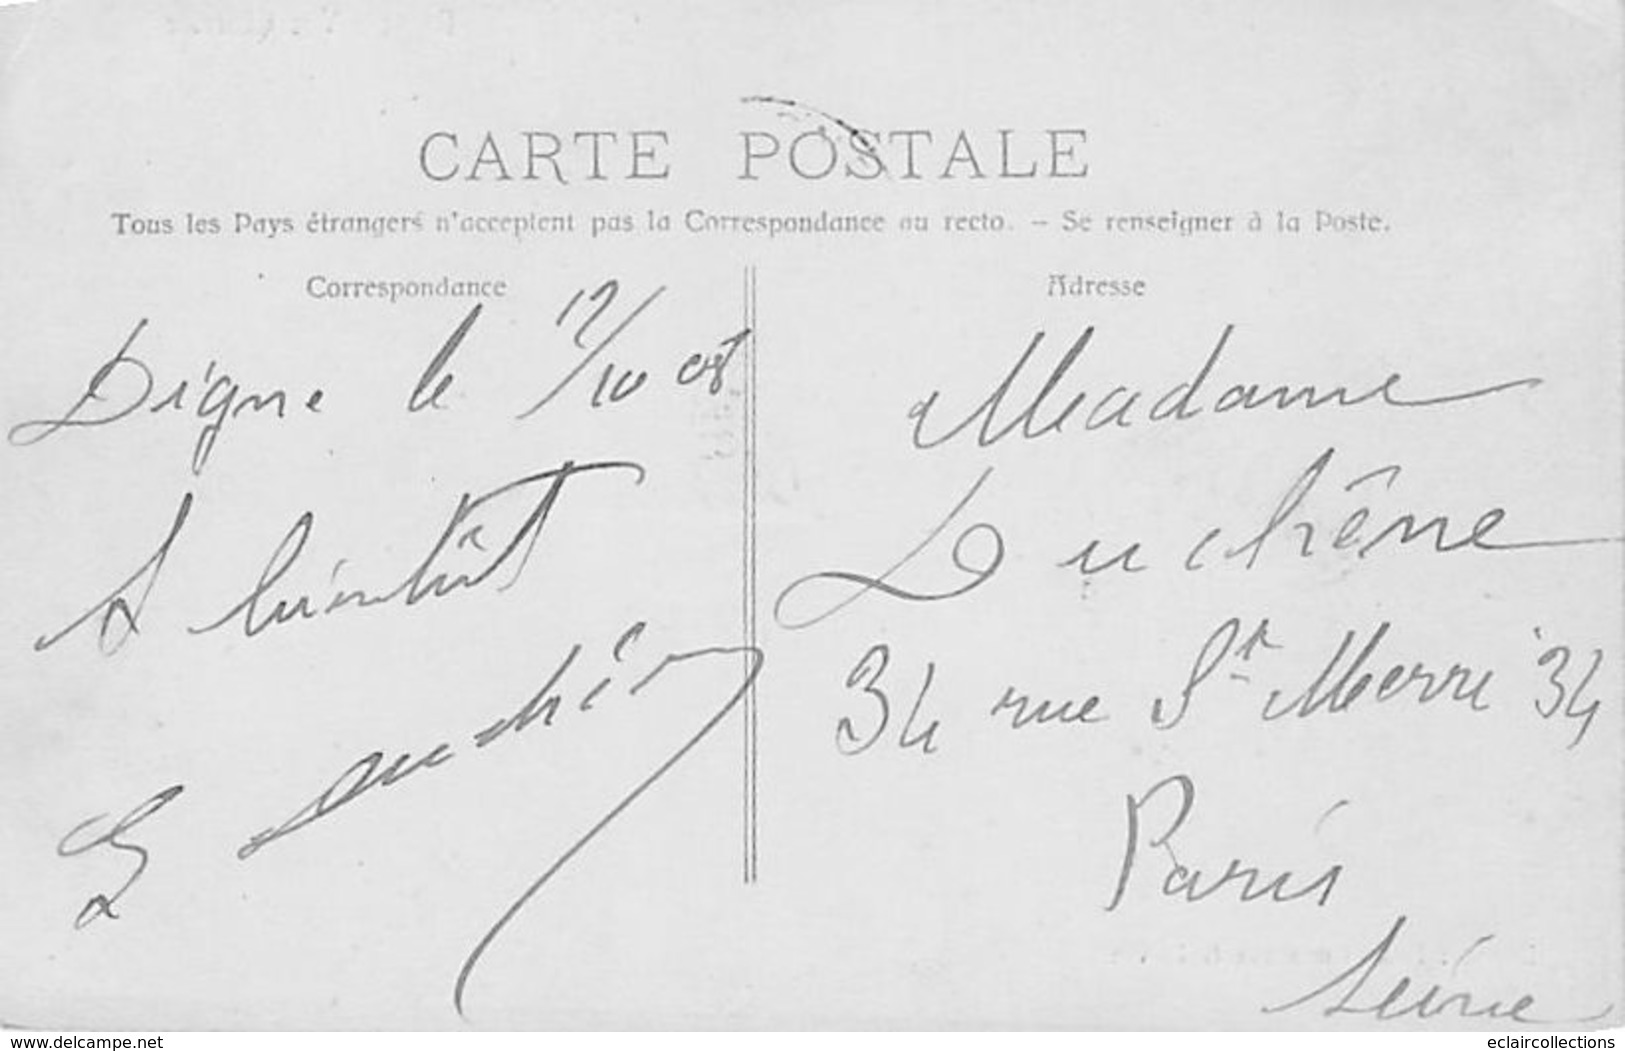 CARTE POSTALE
Tous les Pays étrangers n'acceptent pas la Correspondance au recto. – Se renseigner à la Poste.
Correspondance
Digne le 12/10 08
A bientôt
Adresse
Madame
Duchêne
34 rue St Merri 34
Paris
Seine
www.delcampe.net
eclaircollections